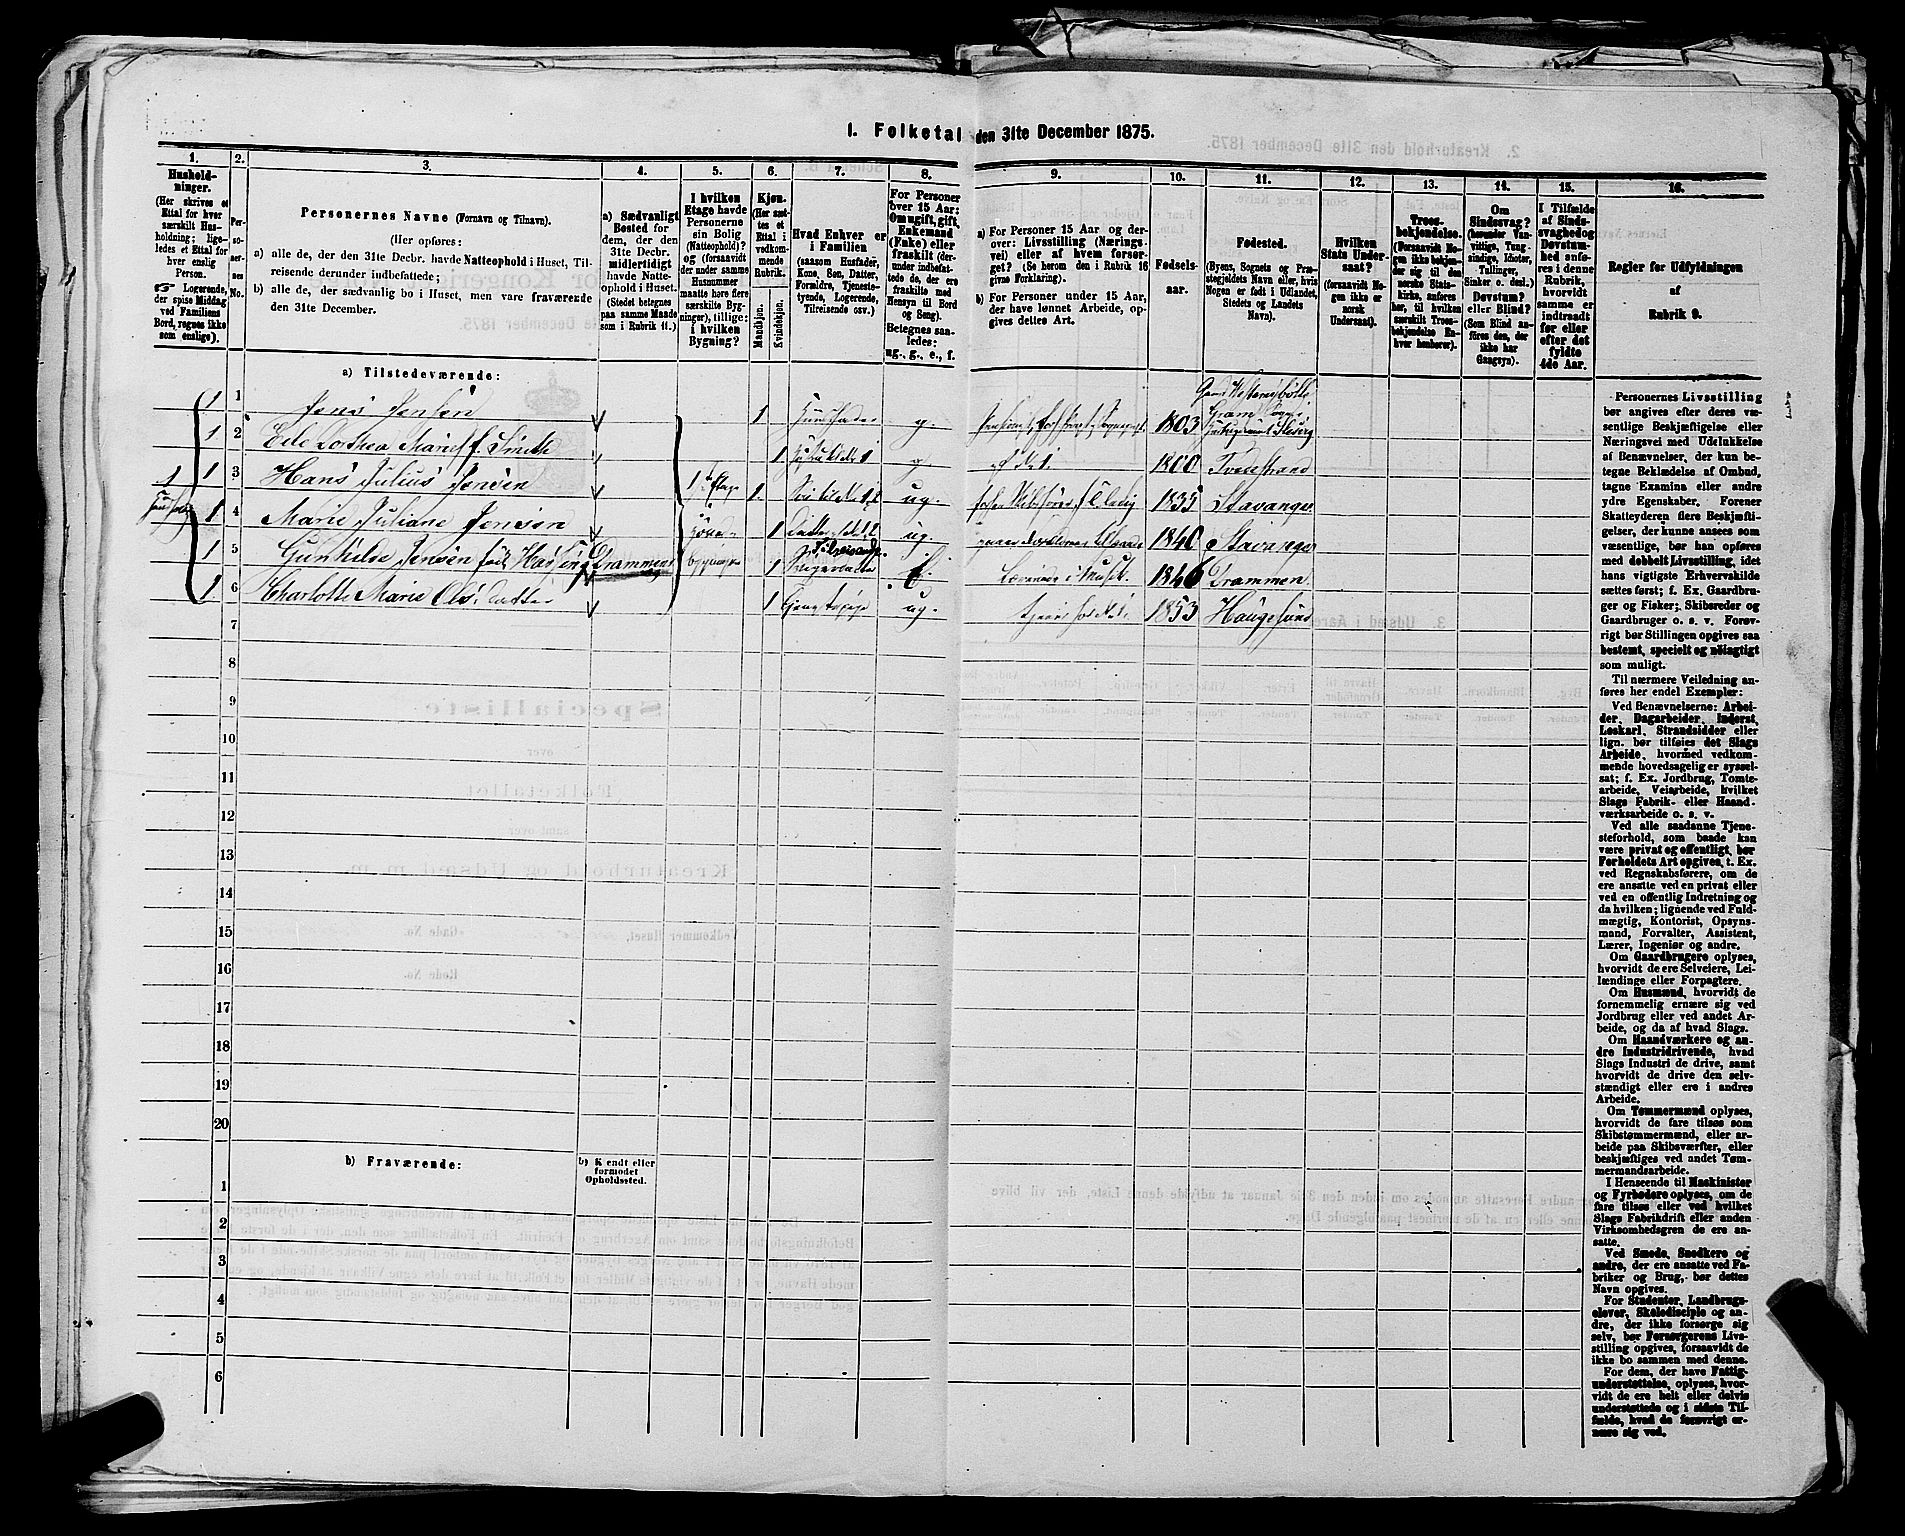 1. Folketal den 31te December 1875.
1. 2. 3. 4. 5. 6. 7. 8. 9. 10. 11. 12. 13. 14. 15. 16.
Husholdninger.
(Her skrives et
Ettal for hver
særskilt Husholdning; ligeledes
et Ettal for
hver enslig
Person.
☞ Logerende,
der spise Middag
ved Familiens
Bord, regnes ikke
som enslige).
Personernes No.
Personernes Navne (Fornavn og Tilnavn).
(Her opføres:
a) alle de, der den 31te Decbr. havde Natteophold i Huset, Tilreisende derunder indbefattede;
b) alle de, der sædvanlig bo i Huset, men vare fraværende
den 31te December.
a) Sædvanligt
Bosted for
dem, der den
31te Decbr.
midlertidigt
havde Natteophold i Huset.
(Stedet betegnes
paa samme Maade
som i Rubrik 11.)
I hvilken
Etage havde
Personerne
sin Bolig
(Natteophold)?
og (forsaavidt
der under samme
Husnummer
maatte høre flere
særskilte Bygninger), tillige:
i hvilken
Bygning?
Kjøn.
(Her sættes et
Ettal i
vedkommende
Rubrik.
Mandkjøn.
Kvindekjøn.
Hvad Enhver er
i Familien
(saasom Husfader,
Kone, Søn, Datter,
Forældre, Tjenestetyende, Logerende,
Tilreisende osv.)
For Personer
over 15 Aar:
Om ugift, gift,
Enkemand
(Enke) eller
fraskilt (derunder indbefattede, de, der ere
fraskilte med
Hensyn til Bord
og Seng).
Betegnes saaledes:
ug., g., e., f.
a) For Personer 15 Aar og derover: Livsstilling (Næringsvei) eller af hvem forsørget? (Se herom den i Rubrik 16
givne Forklaring).
b) For Personer under 15 Aar,
der have lønnet Arbeide, opgives dettes Art.
Fødselsaar.
Fødested.
(Byens, Sognets og Præstegjeldets Navn eller, hvis
Nogen er født i Udlandet,
Stedets og Landets
Navn).
Hvilken
Stats Undersaat?
(forsaavidt Nogen ikke er
norsk
Undersaat).
Troesbekjendelse.
(Forsaavidt Nogen ikke bekjender sig til den
norske Statskirke, anføres
her, til hvilken
særskilt Troesbekjendelse Enhver henhører).
Om
Sindssvag?
(herunder Vanvittige, Tungsindige, Idioter,
Tullinger,
Sinker o. desl.)
Døvstum?
eller Blind?
(Som Blind anføres den, der
ikke har
Gangsyn).
I Tilfælde
af Sindssvaghed og
Døvstumhed anføres i denne
Rubrik,
hvorvidt
samme er
indtraadt
før eller
efter det
fyldte
4de Aar.
Regler for Udfyldningen
af
Rubrik 9.
a) Tilstedeværende:
1 1 Jens Jensen 1 Huusfader g. 1803
1 2 Ede Lothea Marie f. Smith 1 g 1800 Tvedestrand
1 1 3 Hans Julius Jensen 1 Etage 1. ug. 1835 Stavanger
1 4 Marie Juliane Jensen 1 ug. 1840 Stavanger
1 5 Gunhilde Jensen født Hansen Drammen 1 Lærerinde i Musik. 1846 Drammen
1 6 Charlotte Marie Olsdatter 1 ug. 1853 Haugesund
7
8
9
10
11
12
13
14
15
16
17
18
19
20
b) Fraværende:
b) Kjendt eller
formodet
Opholdssted.
1
2
3
4
5
6
Personernes Livsstilling
bør angives efter deres væsentlige Beskjæftigelse eller
Næringsvei med Udelukkelse
af Benævnelser, der kun betegne Beklædelse af Ombud,
tagne Examina eller andre
ydre Egenskaber. Forener
Skatteyderen flere Beskjæftigelser, der kunne ansees som
væsentlige, bør han opføres
med dobbelt Livsstilling, idet
hans vigtigste Erhvervskilde
sættes først; f. Ex. Gaardbruger og Fisker; Skibsreder og
Gaardbruger o. s. v. Forøvrigt bør Stillingen opgives saa
bestemt, specielt og nøiagtigt
som muligt.
Til nærmere Veiledning anføres her endel Exempler:
Ved Benævnelserne: Arbeider, Dagarbeider, Inderst,
Løskarl, Strandsidder eller
lign. bør tilføies det Slags
Arbeide, hvormed vedkommende hovedsagelig er sysselsat; f. Ex. Jordbrug, Tomtearbeide, Veiarbeide, hvilket
Slags Fabrik- eller Haandværksarbeide o. s. v.
Ved alle saadanne Tjenesteforhold, som baade kan
være privat og offentligt, bør
Forholdets Art opgives, t. Ex.
ved Regnskabsførere, om de
ere ansatte ved en privat eller
ved en offentlig Indretning og
da hvilken; lignende ved Fuldmægtig, Kontorist, Opsynsmand, Forvalter, Assistent,
Lærer, Ingeniør og andre.
Om Gaardbrugere oplyses,
hvorvidt de ere Selveiere, Leilændinge eller Forpagtere.
Om Husmænd, hvorvidt de
fornemmelig ernære sig ved
Jordbrug eller ved andet Arbeide, og da af hvad Slags.
Om Haandværkere og andre Industridrivende, hvad
Slags Industri de drive, samt
hvorvidt de drive den selvstændigt eller ere i andres
Arbeide.
Om Tømmermænd oplyses,
hvorvidt de fare tilsøs som
Skibstømmermænd, eller arbeide paa Skibsværfter, eller
beskjæftiges ved andet Tømmermandsarbeide.
I Henseende til Maskinister
og Fyrbødere oplyses, om de
fare tilsøs eller ved hvilket
Slags Fabrikdrift eller anden
Virksomhedsgren de ere ansatte.
Ved Smede, Snedkere og
andre, der ere ansatte ved Fabriker og Brug, bør dettes
Navn opgives.
For Studenter, Landbrugselever, Skoledisciple og andre, der ikke forsørge sig
selv, bør Forsørgerens Livsstilling opgives, forsaavidt de
ikke bo sammen med denne.
For dem, der have Fattigunderstøttelse, oplyses, hvorvidt de ere helt eller delvis
understøttede og i sidste Tilfælde, hvad de forøvrigt ernære sig ved.